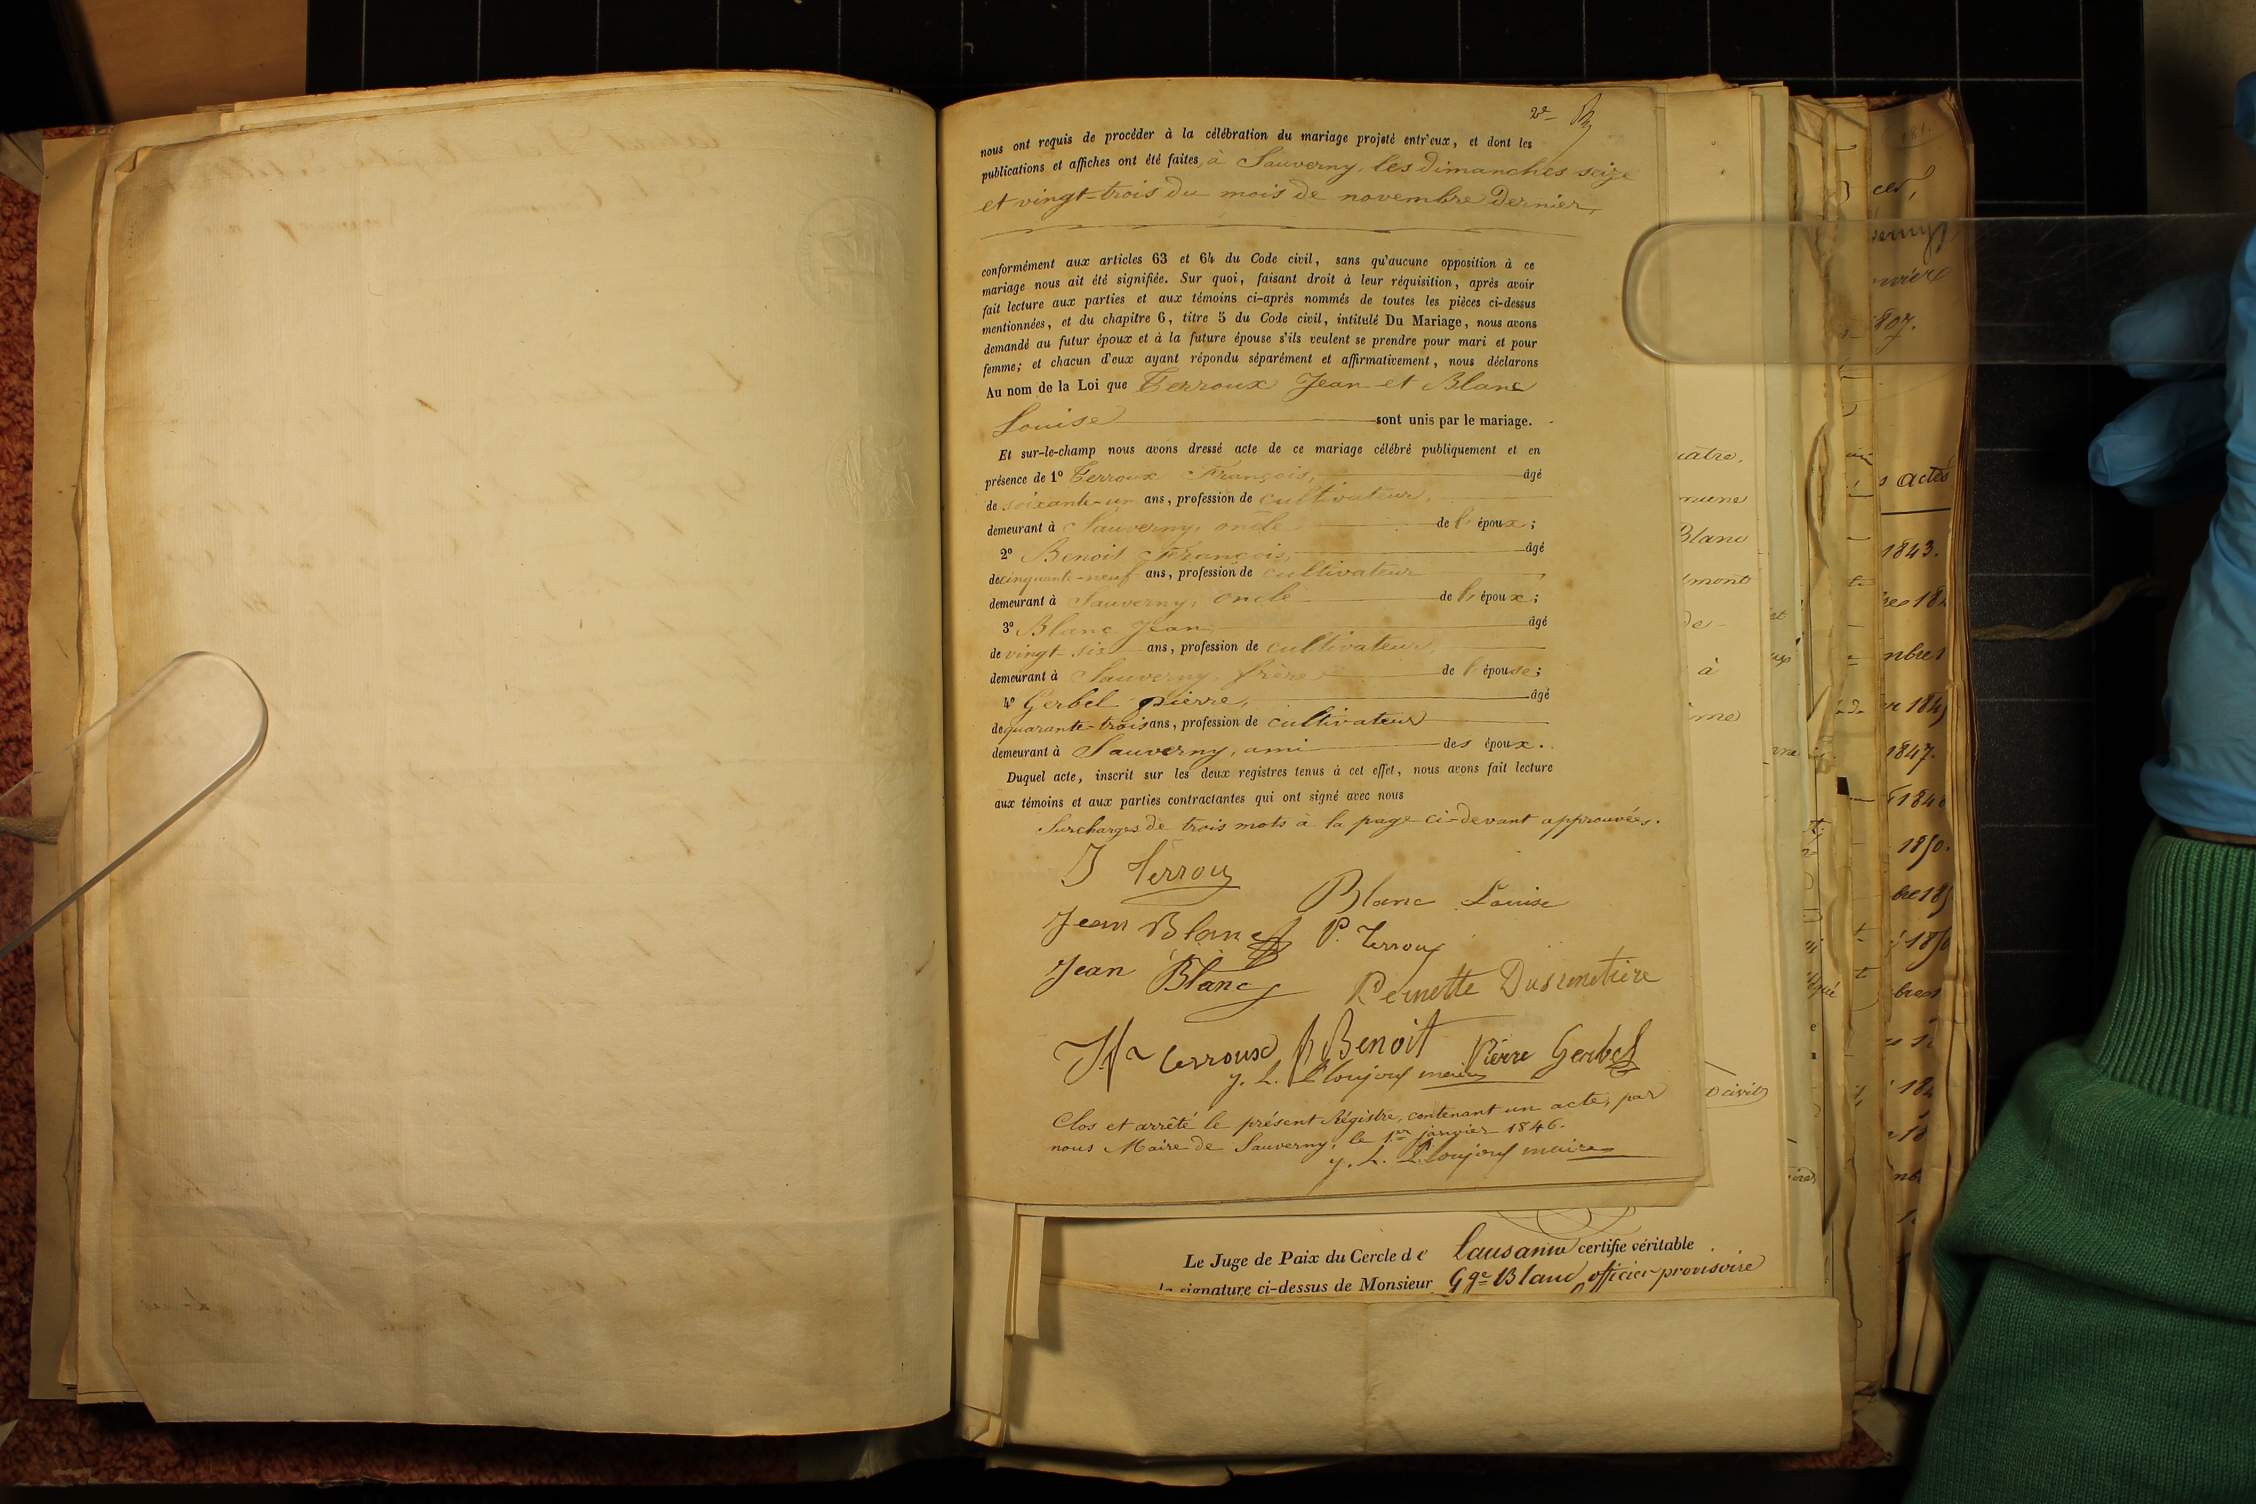 2e
nous ont requis de procéder à la célébration du mariage projeté entr'eux, et dont les
publications et affiches ont été faites, à Sauverny, les dimanches seize
et vingt-trois du mois de novembre dernier,
conformément aux articles 63 et 64 du Code civil, sans qu'aucune opposition à ce
mariage nous ait été signifiée. Sur quoi, faisant droit à leur réquisition, après avoir
fait lecture aux parties et aux témoins ci-après nommés de toutes les pièces ci-dessus
mentionnées, et du chapitre 6, titre 5 du Code civil, intitulé Du Mariage, nous avons
demandé au futur époux et à la future épouse s'ils veulent se prendre pour mari et pour
femme; et chacun d'eux ayant répondu séparément et affirmativement, nous déclarons
Au nom de la Loi que Terroux Jean et Blanc
Louise sont unis par le mariage.
Et sur-le-champ nous avons dressé acte de ce mariage célébré publiquement et en
présence de 1º Terroux François, âgé
de soixante-un ans, profession de cultivateur,
demeurant à Sauverny, oncle de l'époux;
2º Benoit François, âgé
de cinquante-neuf ans, profession de cultivateur
demeurant à Sauverny, oncle de l'époux;
3º Blanc Jean âgé
de vingt-six ans, profession de cultivateur,
demeurant à Sauverny, frère de l'épouse;
4º Gerbel pierre, âgé
de quarante-trois ans, profession de cultivateur
demeurant à Sauverny, ami des époux.
Duquel acte, inscrit sur les deux registres tenus à cet effet, nous avons fait lecture
aux témoins et aux parties contractantes qui ont signé avec nous
Surcharges de trois mots à la page ci-devant approuvées.
J Terroux
Blanc Louise
Jean Blanc P. Terroux
Jean Blanc
Pernette Dusimetière
terroux Benoit Pierre Gerbel
maire
Clos et arrêté le présent Régistre, contenant un acte, par
nous Maire de Sauverny, le 1er janvier 1846.
maire
Le Juge de Paix du Cercle de Lausanne certifie véritable
la signature ci-dessus de Monsieur Gge Blanc, officier provisoire
1807.
actes
1843.
1847.
1850.
Blanc
à
civil